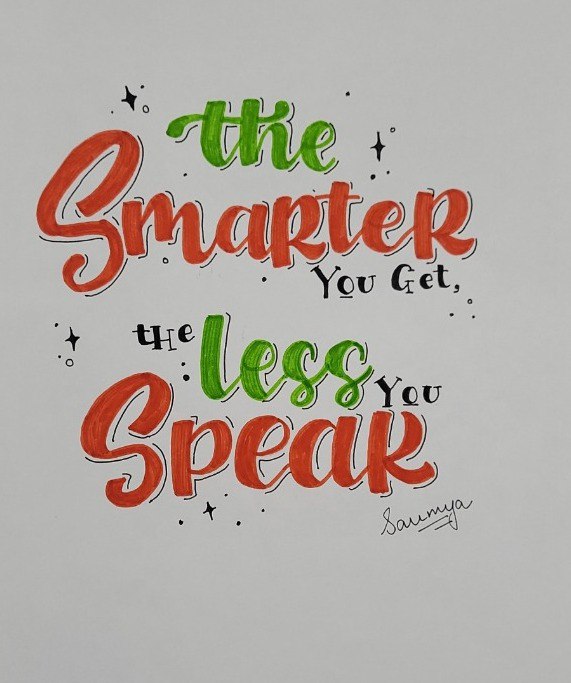 the
SmarteR
You Get,
the less You
Speak
Saumya